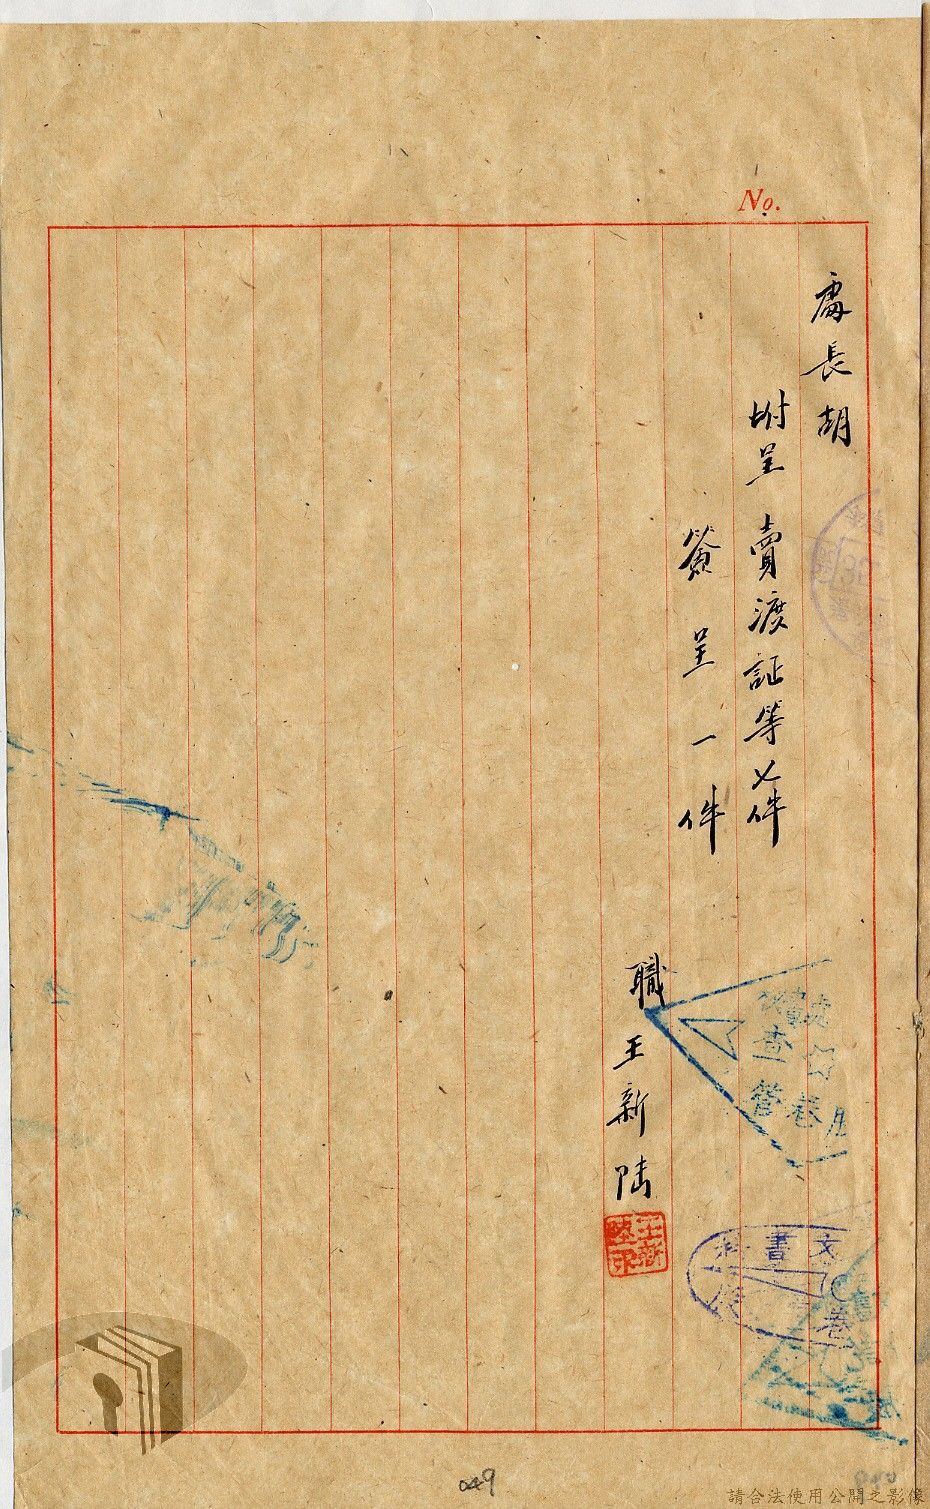 No.
處長胡
附呈賣渡証等七件
簽呈一件
職王新陸
查
管卷
文書科
卷
049
請合法使用公開之影像